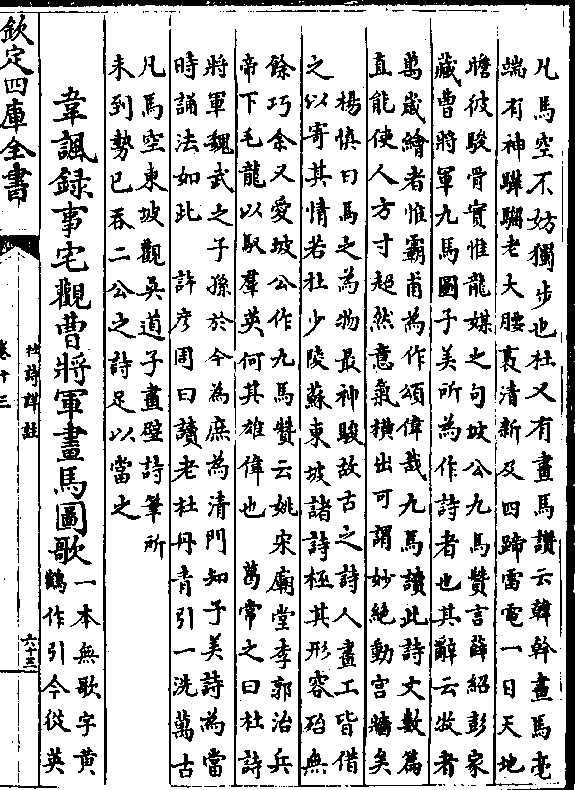 凡馬空不妨獨步也杜又有畫馬讚云韓幹畫馬毫
端有神驊騮老大腰褭清新及四蹄雷電一日天地
瞻彼駿骨實惟龍媒之句坡公九馬贊言薛紹彭家
藏曹將軍九馬圖子美所為作詩者也其辭云牧者
萬歲繪者惟霸甫為作頌偉哉九馬讀此詩文數篇
直能使人方寸超然意氣橫出可謂妙絶動宫牆矣
楊慎曰馬之為物最神駿故古之詩人畫工皆借
之以寄其情若杜少陵蘇東坡諸詩極其形容殆無
餘巧余又愛坡公作九馬贊云姚宋廟堂李郭治兵
帝下毛龍以馭羣英何其雄偉也 葛常之曰杜詩
將軍魏武之子孫於今為庶為清門知子美詩為當
時誦法如此 許彦周曰讀老杜丹青引一洗萬古
凡馬空東坡觀吳道子畫壁詩筆所
未到勢已吞二公之詩足以當之
韋諷録事宅觀曹將軍畫馬圖歌
一本無歌字黄
鶴作引今從英
欽定四庫全書
杜詩詳註
卷十三
六十三